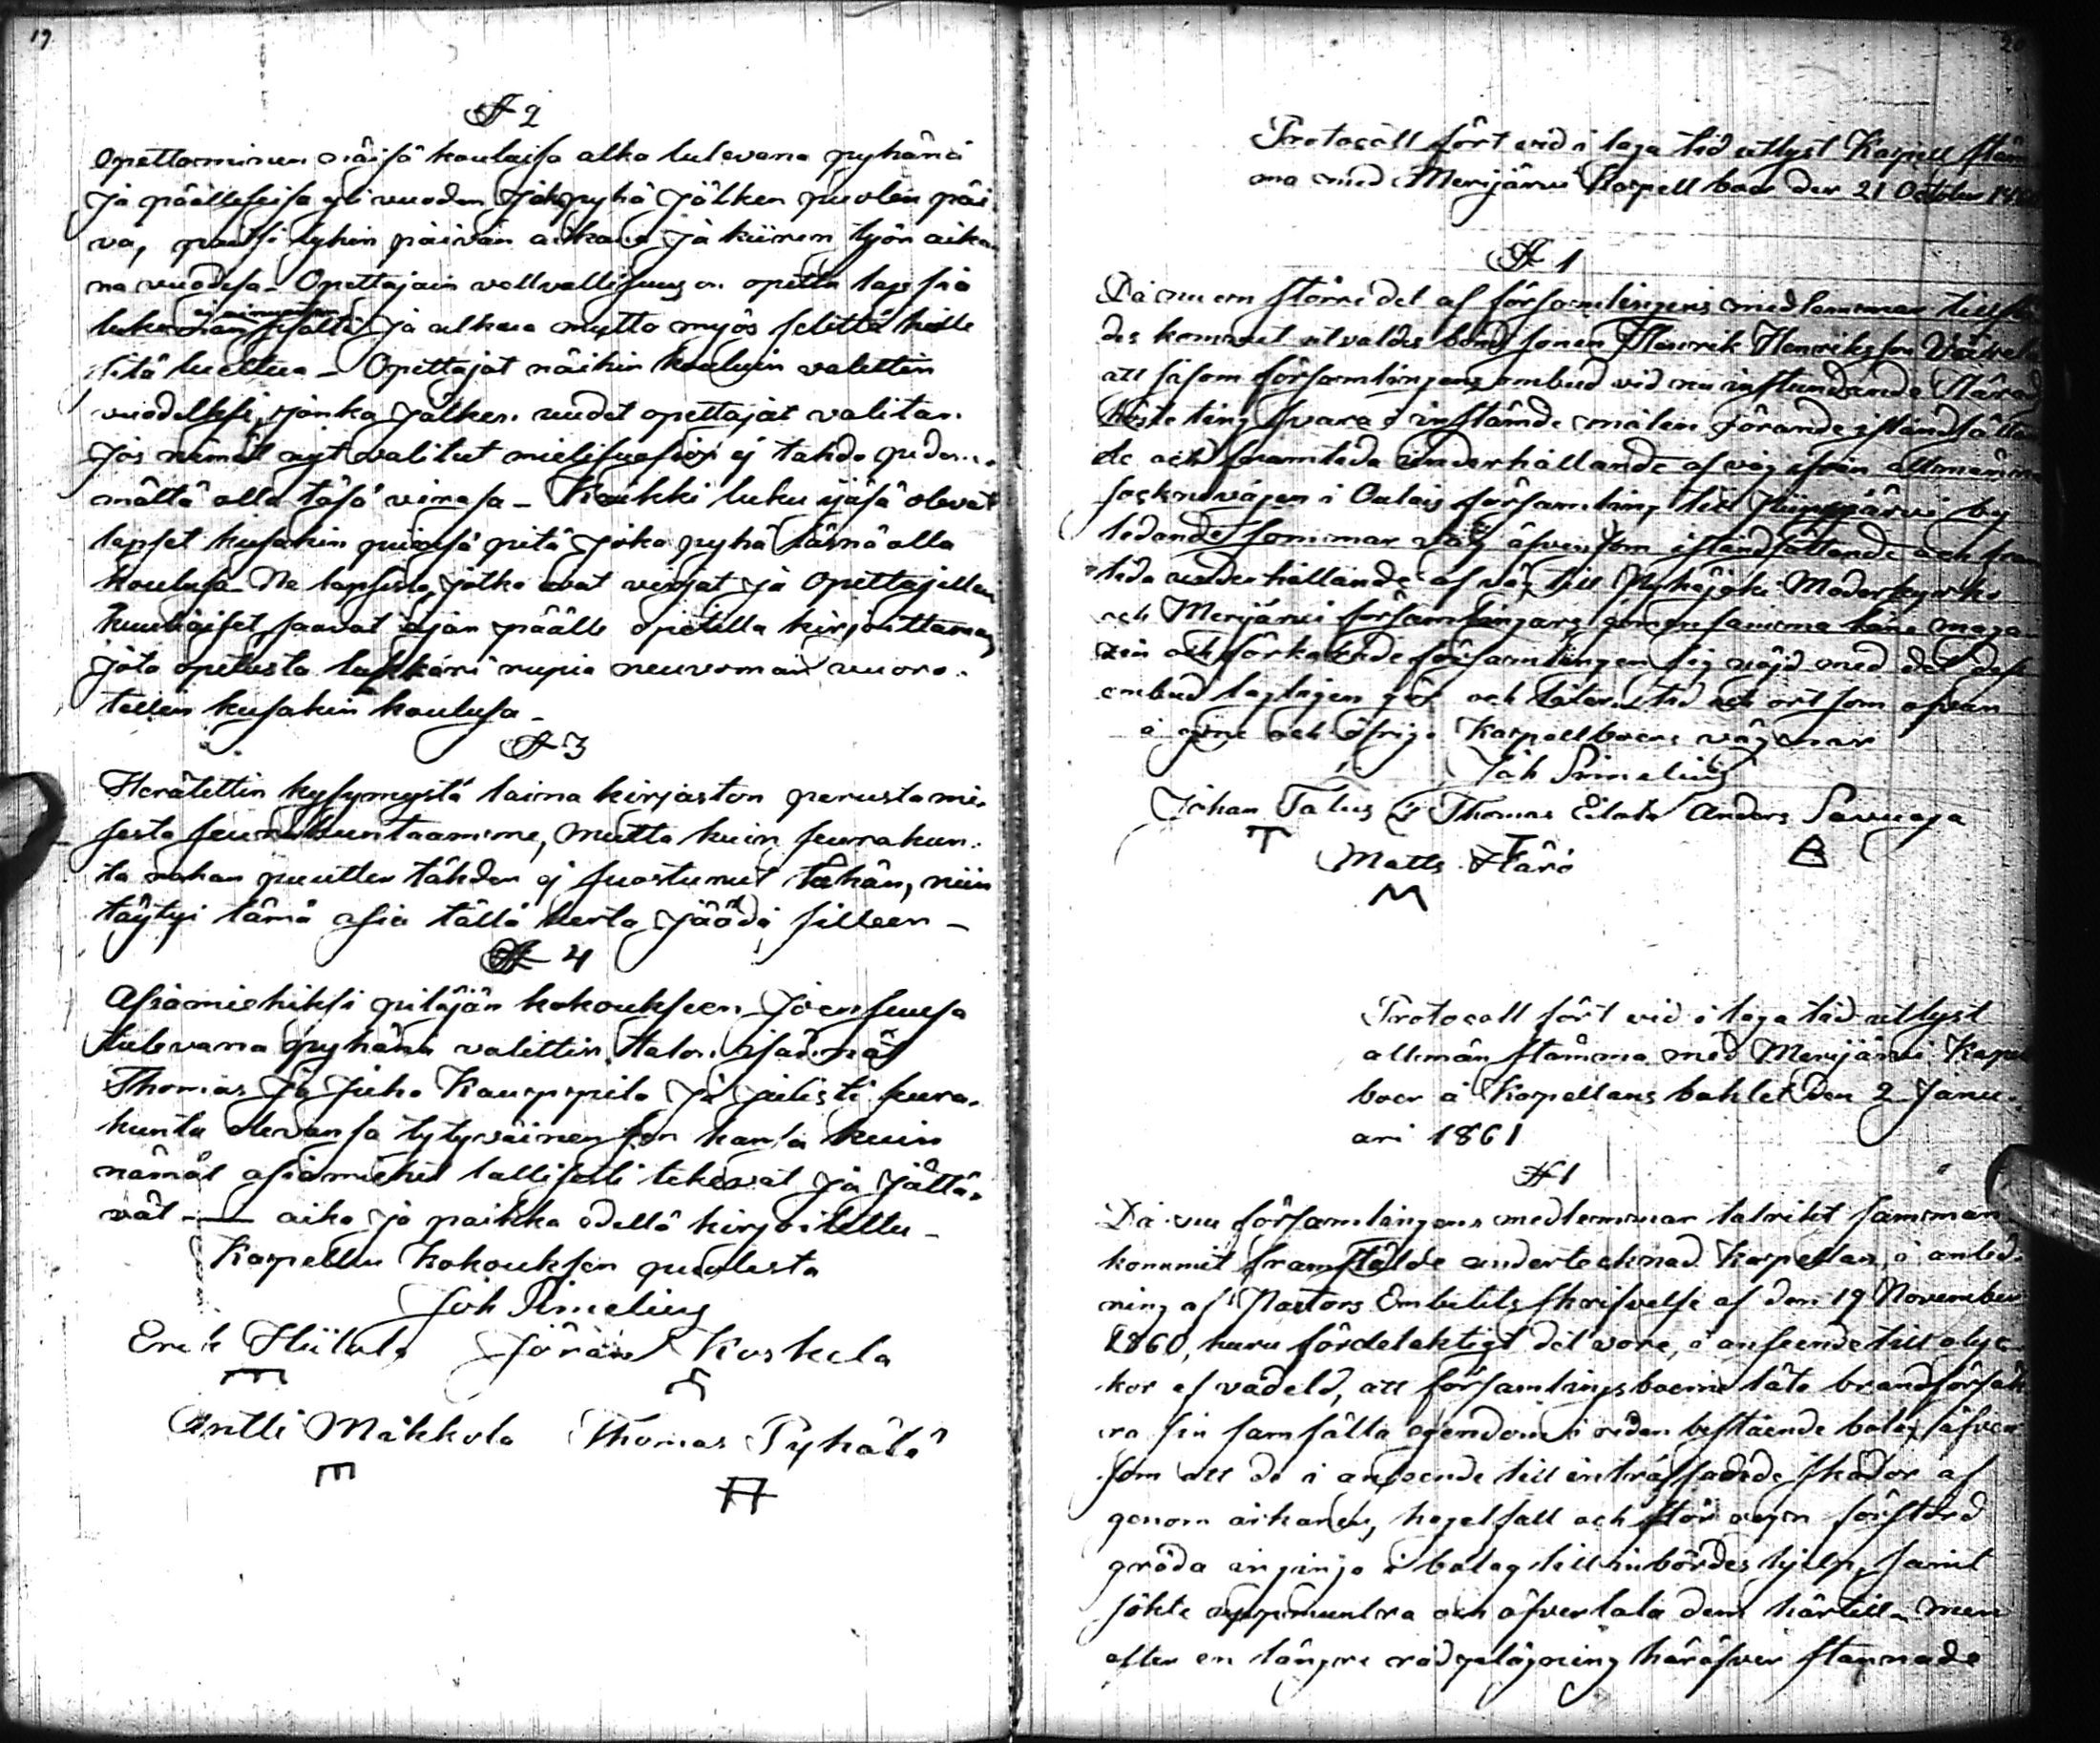 19.
§ 2
Opettaminen näisä kouluisa alka tulevana pyhänä
ja päällseisa yli vuoden joka pyhä jälken puolen päi-
vä, paitsi lyhin päivän aikana ja kiiren työn aika-
na vuodesa. Opettajain velvollisuus on opetta lapsia
lukeman sisältä ja alkaa mytto myös selittä heille
sitä luettua – Opettajat näihin kouluin valittin
vuodeksi, jonka jälken uudet opettajat valitan.
Jos nämät nyt valitut mielisuosiosi ej tahdo pidem-
mältä olla täsä virasa – Kaikki luku ijäsä olevat
lapset kusakin piirisä pitä joka pyhä läsnä olla
koulusa. Ne lapsista, jotka ovat virjat ja Opettajallen
kuuliaiset, saavat ajan päälle opetella kirjoittaman,
jota opetusta lukkari rupia neuvoman vuoro-
tellen kusakin koulusa –
§ 3
Herätettin kysymystä laina kirjaston perustami-
sesta seurakuntaamme, mutta kuin seurakun-
ta rahan puutten tähden ej suostunut tähän, niin
täytyi tämä asia tällä kerta jäädä silleen –
§ 4
Asiamiehiksi pitäjän kokoukseen Joensuusa
tulevana pyhänä valittin talon isännät
Thomas ja Juho Kauppila ja julisti seura-
kunta olevansa tytyväinen sen kansa kuin
nämät asiamiehet laillisesti tekevät ja jättä-
vät — aika ja paikka edellä kirjoitettu –
Kapellin kokouksen puolesta
Joh Simelius
Erik Hiitola Jöran Koskela
Antti Mäkkola Thomas Pyhälä
20
Protocoll fört vid i laga tid utlyst Kapell stäm-
ma med Merijärvi Kapell boer den 21 October 1860
§ 1
Då nu en större del af församlingens medlemmar tillstä-
des kommit utvaldes bond sonen Henrik Henriksson
att såsom församlingens ombud vid nu instundande Härads
höste ting svara i instämde målen rörande iståndsättan-
de och framtida underhållande af väg ifrån allmänna
socknevägen i Oulais församling till by
ledande sommar väg äfvensom iståndsättande och fram-
tida underhållande af väg till Pyhäjoki Moderkyrko
och Merijärvi församlingars gemensamma låne maga-
zin och förklarade församlingen sig nöjd med det dess
ombud lagligen gör och låter. Tid och ort som ofvan
å egne och öfrige Kapellboers vägnar
Joh Simelius
Johan Talus Thomas Eilola Anders Savuoja
Matts Häro
Protocoll fört vid i laga tid utlyst
allmän stämma med Merijärvi Kapell
boer å Kapellans bohlet den 2 Janu-
ari 1861
§ 1
Då nu församlingens medlemmar talrikt samman-
kommit framstälde undertecknad Kapellan, i anled-
ning af Pastors Embetets skrifvelse af den 19 November
1860, huru fördelaktigt det vore, i anseende till olyc-
kor af vådeld, att församlingsboerne låta brandförsäk-
ra sin samfälta egendom i redan bestående bolag, äfven
som att de i anseende till inträffadede skador af
genom åskan, hagelfall och stor ägn förstörd
gröda ingingo i bolag till inbördes hjelp, samt
sökte uppmuntra och öfvertala dem härtill, men
efter en längre rådplägning häröfver stannade